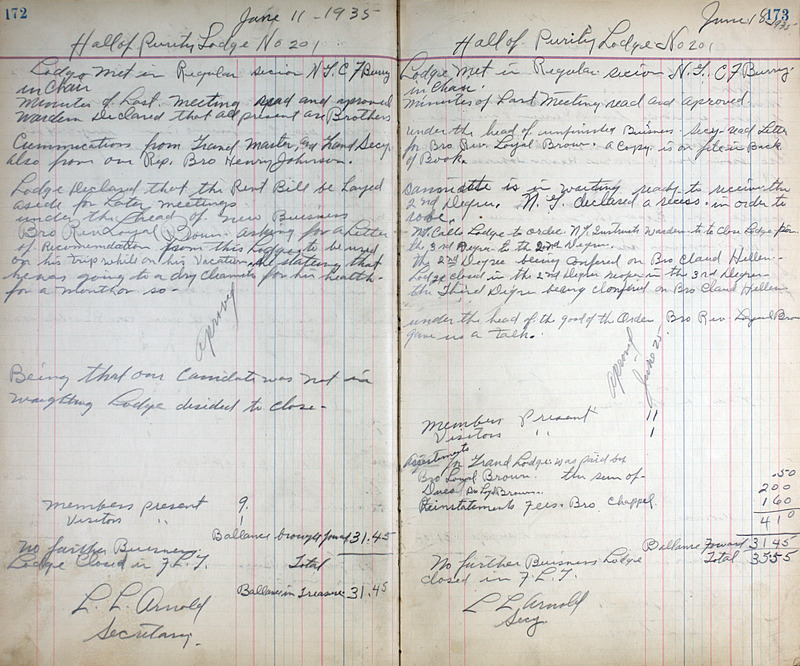 172
June 11 - 1935
Hall of Purity Lodge No 201
Lodge Met in Regular secion N.G. C F Burry
in Chair
Minutes of Last meeting read and aproved
Warden Declared that all present are Brothers
Cummications from Grand Master, and Grand Secy.
also from our Rep. Bro Henry Johnson.
Lodge Declared that the Rent Bill be Layed
aside for Later meetings
under the head of new Buisness
Bro Rev. Loyal Brown. asking for a Letter
of Recomendation from this Lodge to be used
on his trip while on his Vacation. he stating that
he was going to a dry Clamite for his health
for a month or so -
Aproved
Being that our Camidate was not in
waighting Lodge desided to close -
members present 9.
Visitors " 1
Ballance brought forward 31.45
No further Buisness
Lodge Closed in F.L.T. Total
Ballance in Treasure 31.45
L. L. Arnold
Secretary.
173
June 18 1935
Hall of Purity Lodge No 201
Lodge Met in Regular secion N.G. C F Burry
in Chair.
Minutes of Last Meeting read and aproved.
under the head of unfinished Buisness - Secy. read Letter
for Bro Rev. Loyal Brown. a copy is on file in Back
of Book.
is in waiting ready to receive the
2nd Degree. N.G. declared a recess. in order to
robe.
N.G. Calls Lodge to Order. N.G. Instructs Warden to Close Lodge from
the 3rd Degre to the 2nd Degree.
the 2nd Degree being confered on Bro Claud Hellen -
Lodge closed in the 2nd Degree reopen in the 3rd Degree
the Third Degre being Confered on Bro Claud Hellen
under the head of the good of the Order Bro Rev. Loyal Brown
gave us a talk.
Aproved
June 25
Members Present 11
Visitors " 1
for Grand Lodge was paid by
Bro Loyal Brown. the sum of - .50
Dues Bro Loyl Brown. 200
Reinstatements Fees. Bro. Chappel. 160
410
Ballance Forward 3145
No further Buisness Lodge Total 3555
closed in F.L.T.
L L Arnold
Secy.